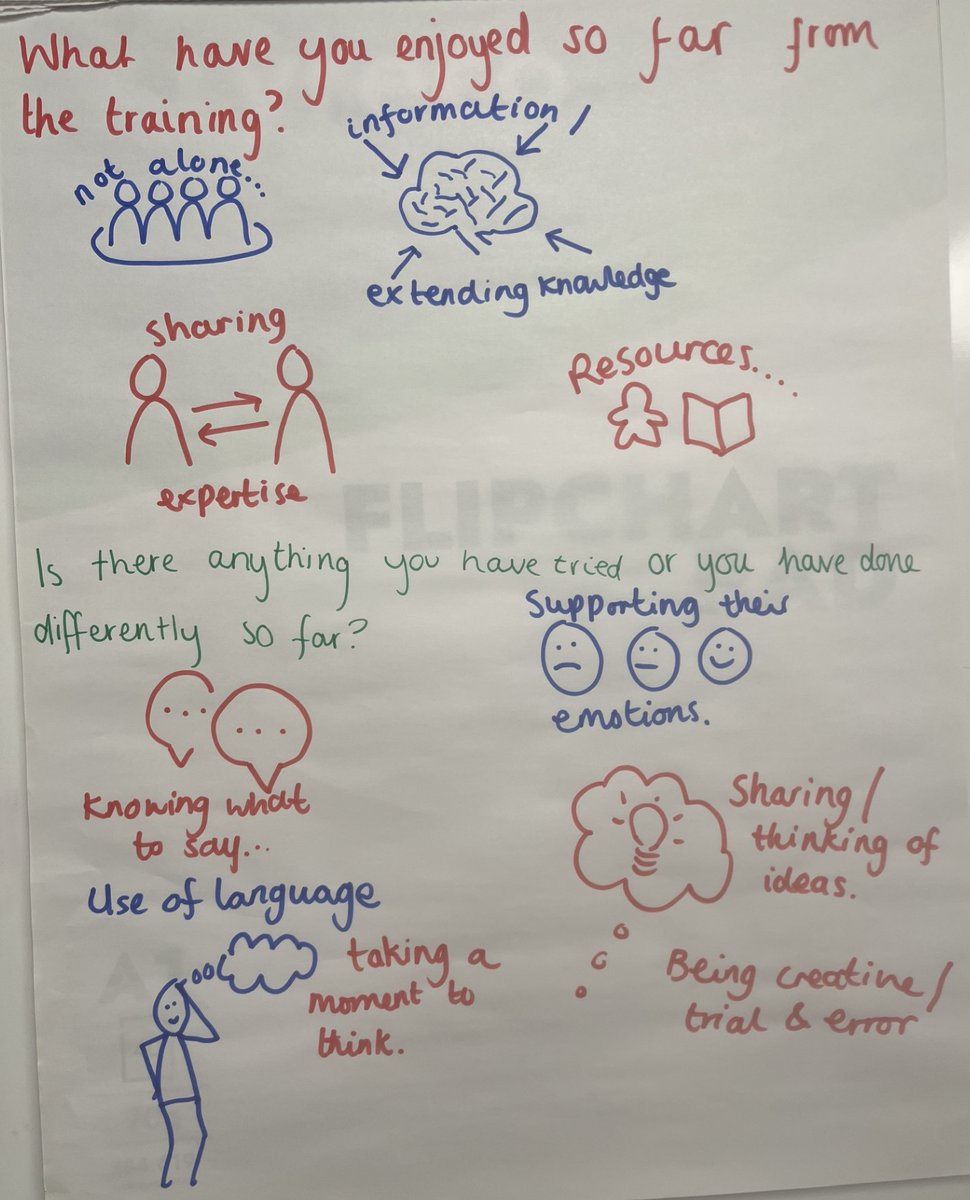 What have you enjoyed so far from
the training?
not alone...
information /
extending knowledge
sharing
expertise
Resources...
FLIPCHART
PAD
Is there anything you have tried or you have done
differently so far?
Supporting their
emotions.
Knowing what
to say...
Sharing/
thinking of
ideas.
Use of language
taking a
moment to
think.
Being creative/
trial & error
A1